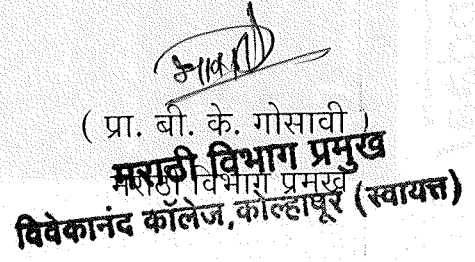 ( प्रा. बी. के. गोसावी )
मराठी विभाग प्रमुख
मराठी विभाग प्रमुख
विवेकानंद कॉलेज,कोल्हापूर (स्वायत्त)